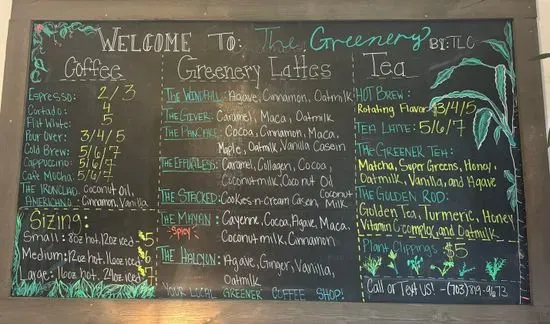 WELCOME TO: The Greenery BY: TLC
Coffee
Espresso: 2/3
Cortado: 4
Flat White: 5
Pour Over: 3/4/5
Cold Brew: 5/6/7
Cappuccino: 5/6/7
Cafe Mocha: 5/6/7
THE IRONCLAD: Coconut Oil,
AMERICANO: Cinnamon, Vanilla
Sizing:
Small: 8oz hot, 12oz iced $5
Medium: 12oz hot, 16oz iced $6
Large: 16oz hot, 24oz iced
Greenery Lattes
THE WINDFALL: Agave, Cinnamon, Oatmilk
THE GIVER: Caramel, Maca, Oatmilk
THE PANCAKE: Cocoa, Cinnamon, Maca,
Maple, Oatmilk Vanilla Casein
THE EFFORTLESS: Caramel, Collagen, Cocoa,
Coconutmilk, Coconut Oil
THE STACKED: Cookies n-cream Casein, Coconut Milk
THE MAYAN: Cayenne, Cocoa, Agave, Maca,
SPICY Coconutmilk, Cinnamon
THE HALCYON: Agave, Ginger, Vanilla,
Oatmilk
YOUR LOCAL GREENER COFFEE SHOP:
Tea
HOT BREW:
Rotating Flavor 3/4/5
TEA LATTE: 5/6/7
THE GREENER TEA:
Matcha, Super Greens, Honey,
Oatmilk, Vanilla, and Agave
THE GOLDEN ROD:
Golden Tea, Turmeric, Honey
Vitamin C complex, and Oatmilk
Plant Clippings $5
Call or Text us! -(703)819-9673